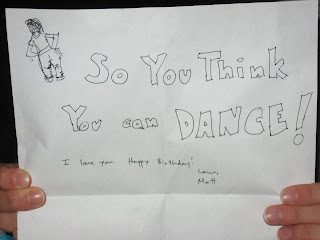 So You Think
You can DANCE!
I love you. Happy Birthday!
Love,
Matt